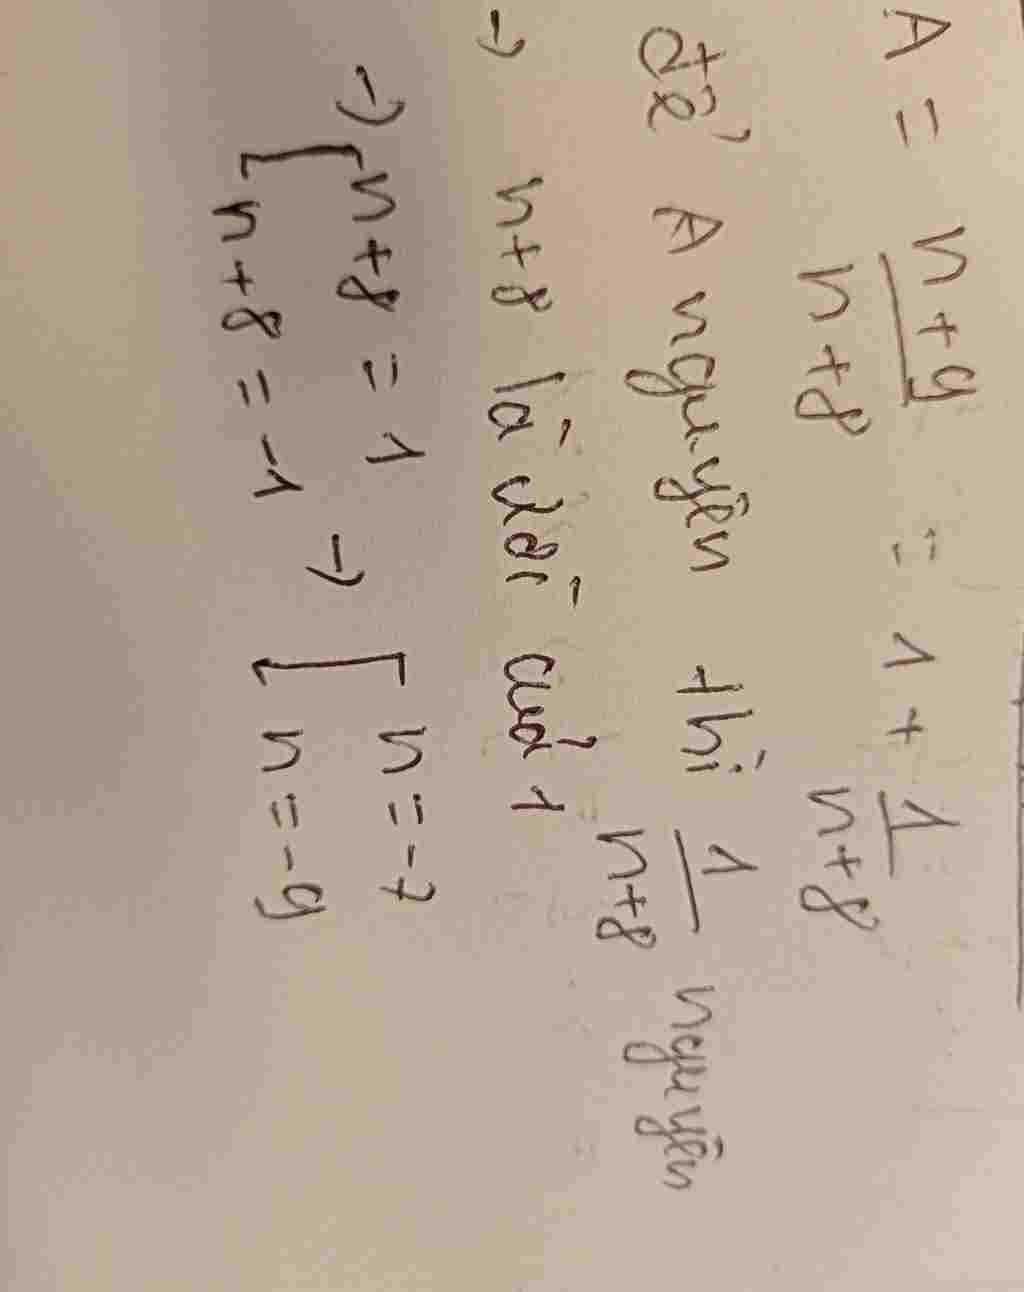 A = n+9/n+8 = 1 + 1/n+8
để A nguyên thì 1/n+8 nguyên
→ n+8 là ước của 1
→ [ n+8 = 1 → [ n = -7
n+8 = -1 n = -9